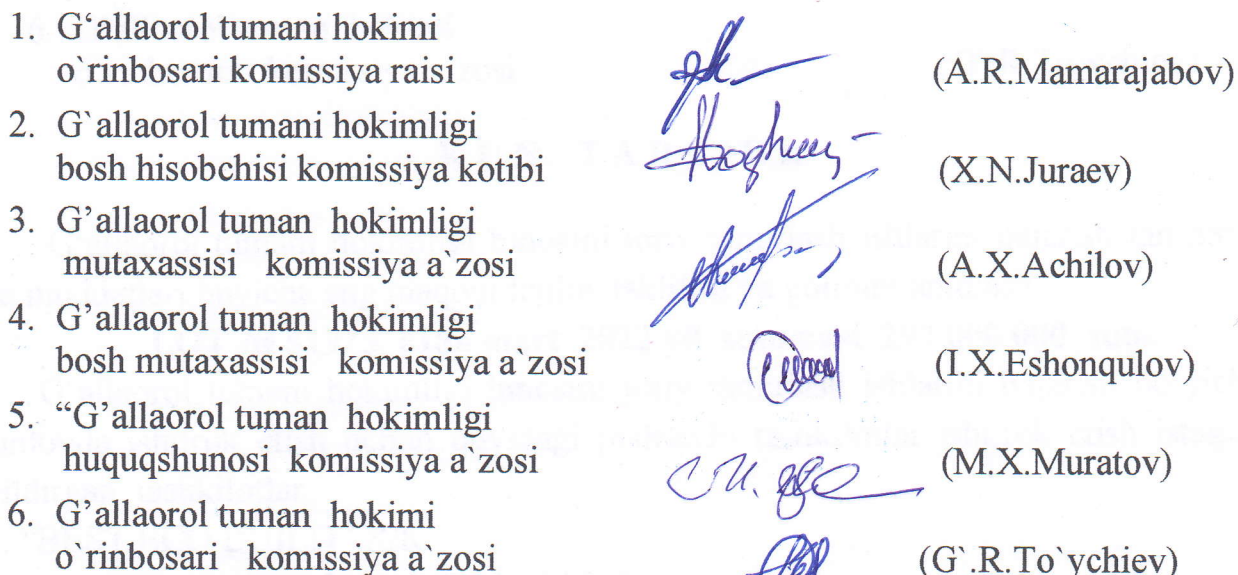 1. G‘allaorol tumani hokimi
o`rinbosari komissiya raisi (A.R.Mamarajabov)
2. G`allaorol tumani hokimligi
bosh hisobchisi komissiya kotibi (X.N.Juraev)
3. G’allaorol tuman hokimligi
mutaxassisi komissiya a`zosi (A.X.Achilov)
4. G’allaorol tuman hokimligi
bosh mutaxassisi komissiya a`zosi (I.X.Eshonqulov)
5. “G’allaorol tuman hokimligi
huquqshunosi komissiya a`zosi (M.X.Muratov)
6. G’allaorol tuman hokimi
o`rinbosari komissiya a`zosi (G`.R.To`ychiev)